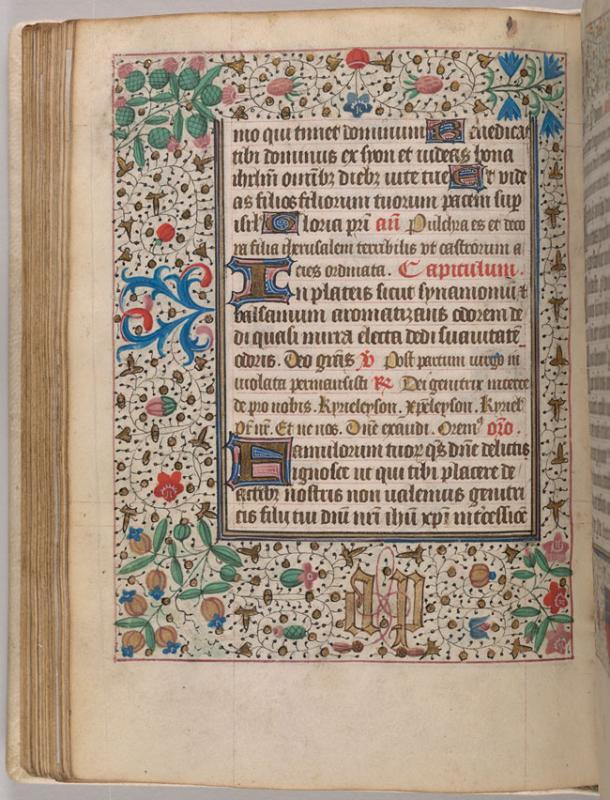 mo qui timet dominum Benedicat
tibi dominus ex syon et uideas bona
ihrlm omnibz diebz uite tue Et vide
as filios filiorum tuorum pacem sup
isrl Gloria pri an Pulchra es et deco
ra filia iherusalem terribilis vt castrorum a
cies ordinata. Capitulum.
In plateis sicut synamomum et
balsamum aromatizans odorem de
di quasi mirra electa dedi suauitate
odoris. Deo gras V Post partum uirgo in
uiolata permansisti R Dei genitrix interce
de pro nobis. Kyrieleyson. xpeleyson. Kyriel
Pr nr. Et ne nos. Dne exaudi. Orem oro.
Famulorum tuor qs dne delictis
ignosce ut qui tibi placere de
actibz nostris non ualemus genitri
cis filij tui dni nri ihu xpi intercessioe
a p